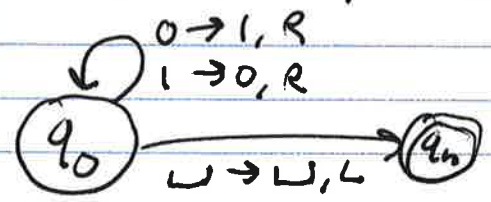 0 → 1, R
1 → 0, R
q0
⊔ → ⊔, L